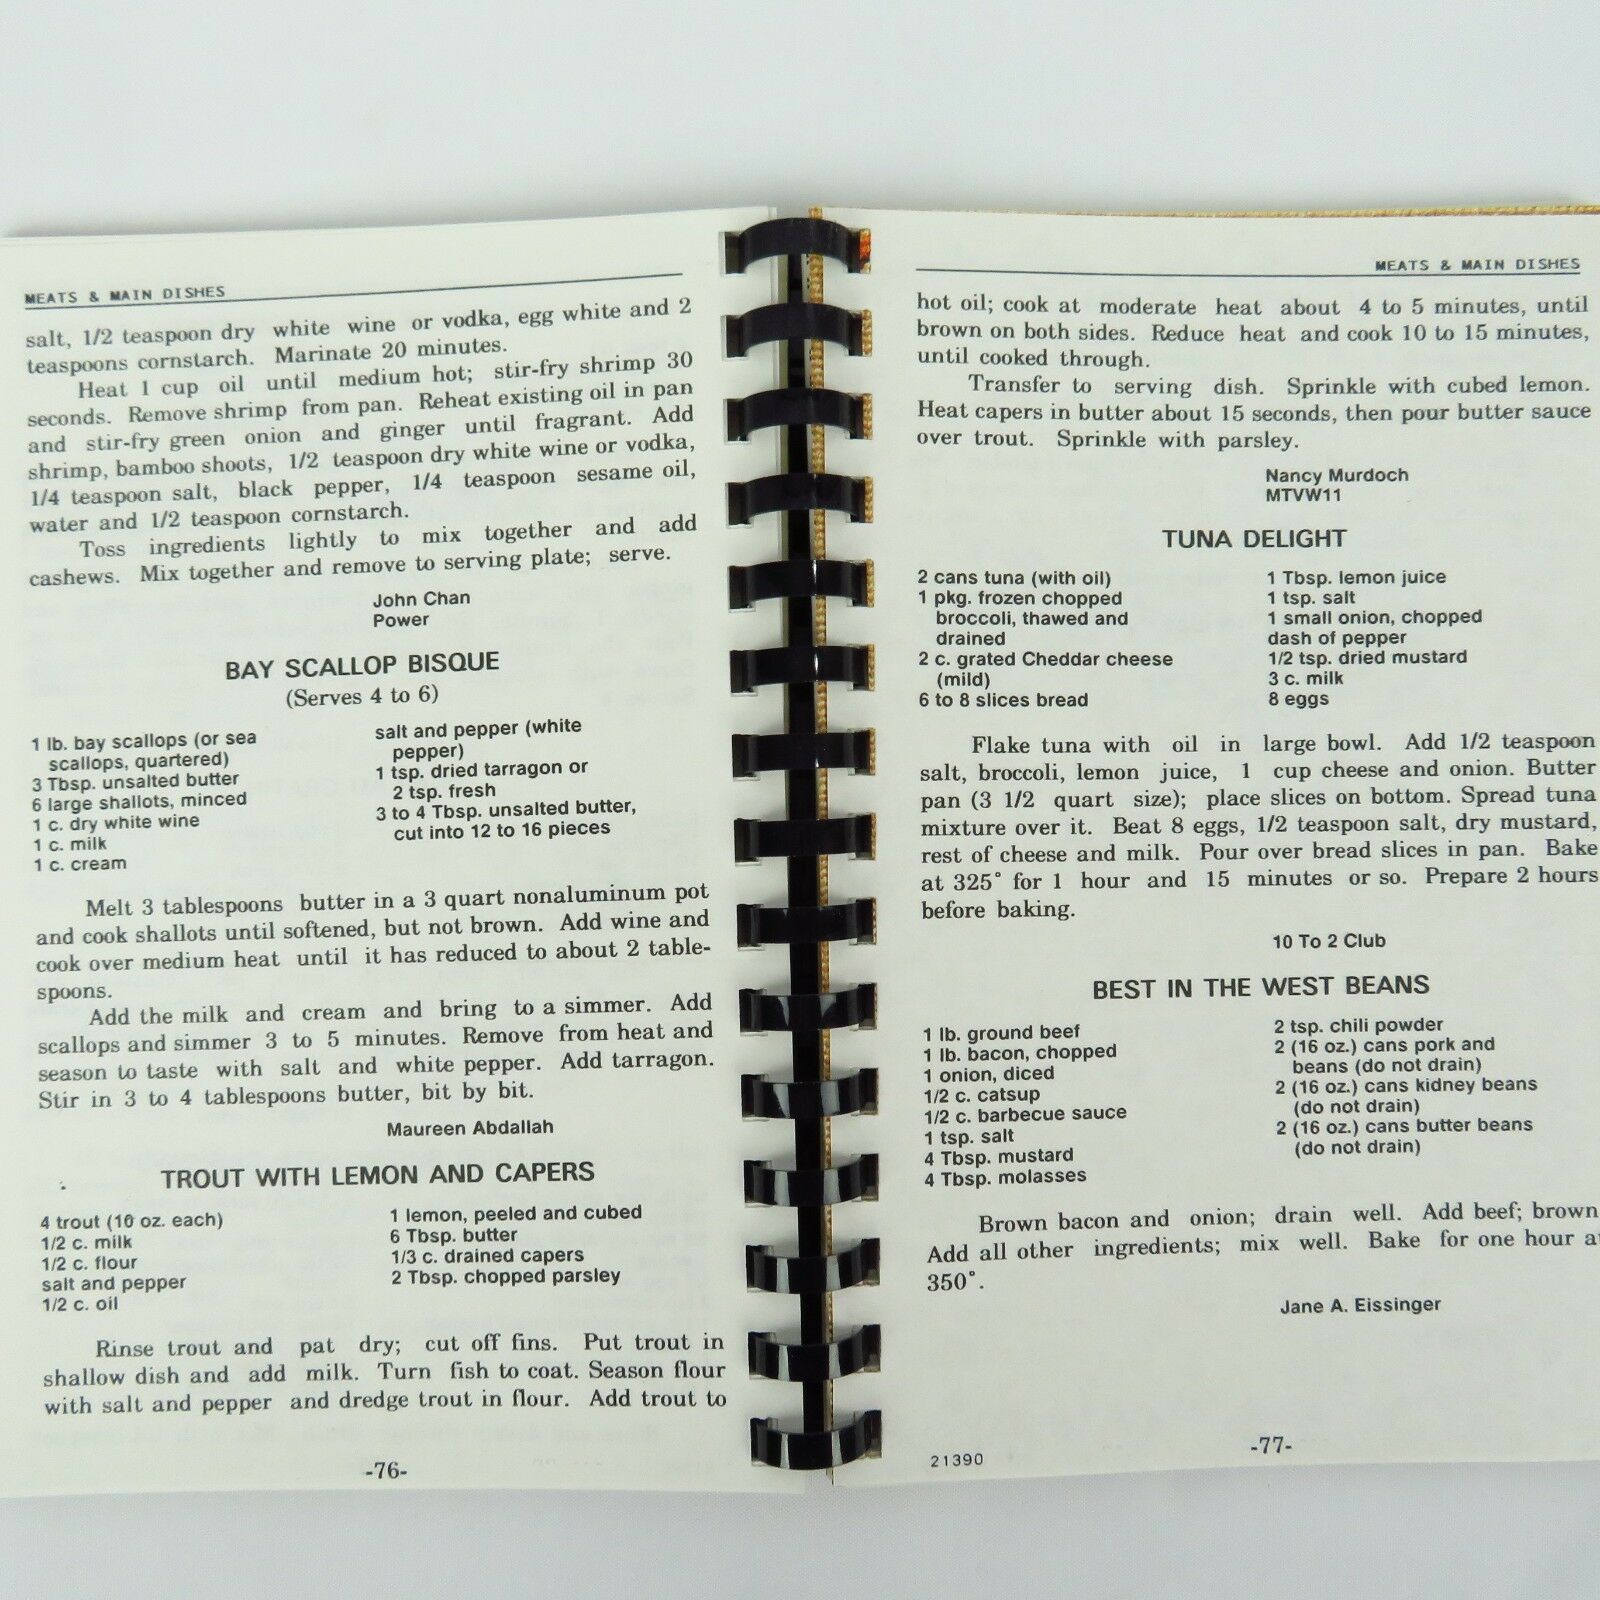 MEATS & MAIN DISHES
salt, 1/2 teaspoon dry white wine or vodka, egg white and 2
teaspoons cornstarch. Marinate 20 minutes.
Heat 1 cup oil until medium hot; stir-fry shrimp 30
seconds. Remove shrimp from pan. Reheat existing oil in pan
and stir-fry green onion and ginger until fragrant. Add
shrimp, bamboo shoots, 1/2 teaspoon dry white wine or vodka,
1/4 teaspoon salt, black pepper, 1/4 teaspoon sesame oil,
water and 1/2 teaspoon cornstarch.
Toss ingredients lightly to mix together and add
cashews. Mix together and remove to serving plate; serve.
John Chan
Power
BAY SCALLOP BISQUE
(Serves 4 to 6)
1 lb. bay scallops (or sea
scallops, quartered)
3 Tbsp. unsalted butter
6 large shallots, minced
1 c. dry white wine
1 c. milk
1 c. cream
salt and pepper (white
pepper)
1 tsp. dried tarragon or
2 tsp. fresh
3 to 4 Tbsp. unsalted butter,
cut into 12 to 16 pieces
Melt 3 tablespoons butter in a 3 quart nonaluminum pot
and cook shallots until softened, but not brown. Add wine and
cook over medium heat until it has reduced to about 2 table-
spoons.
Add the milk and cream and bring to a simmer. Add
scallops and simmer 3 to 5 minutes. Remove from heat and
season to taste with salt and white pepper. Add tarragon.
Stir in 3 to 4 tablespoons butter, bit by bit.
Maureen Abdallah
TROUT WITH LEMON AND CAPERS
4 trout (10 oz. each)
1/2 c. milk
1/2 c. flour
salt and pepper
1/2 c. oil
1 lemon, peeled and cubed
6 Tbsp. butter
1/3 c. drained capers
2 Tbsp. chopped parsley
Rinse trout and pat dry; cut off fins. Put trout in
shallow dish and add milk. Turn fish to coat. Season flour
with salt and pepper and dredge trout in flour. Add trout to
-76-
MEATS & MAIN DISHES
hot oil; cook at moderate heat about 4 to 5 minutes, until
brown on both sides. Reduce heat and cook 10 to 15 minutes,
until cooked through.
Transfer to serving dish. Sprinkle with cubed lemon.
Heat capers in butter about 15 seconds, then pour butter sauce
over trout. Sprinkle with parsley.
Nancy Murdoch
MTVW11
TUNA DELIGHT
2 cans tuna (with oil)
1 pkg. frozen chopped
broccoli, thawed and
drained
2 c. grated Cheddar cheese
(mild)
6 to 8 slices bread
1 Tbsp. lemon juice
1 tsp. salt
1 small onion, chopped
dash of pepper
1/2 tsp. dried mustard
3 c. milk
8 eggs
Flake tuna with oil in large bowl. Add 1/2 teaspoon
salt, broccoli, lemon juice, 1 cup cheese and onion. Butter
pan (3 1/2 quart size); place slices on bottom. Spread tuna
mixture over it. Beat 8 eggs, 1/2 teaspoon salt, dry mustard,
rest of cheese and milk. Pour over bread slices in pan. Bake
at 325° for 1 hour and 15 minutes or so. Prepare 2 hours
before baking.
10 To 2 Club
BEST IN THE WEST BEANS
1 lb. ground beef
1 lb. bacon, chopped
1 onion, diced
1/2 c. catsup
1/2 c. barbecue sauce
1 tsp. salt
4 Tbsp. mustard
4 Tbsp. molasses
2 tsp. chili powder
2 (16 oz.) cans pork and
beans (do not drain)
2 (16 oz.) cans kidney beans
(do not drain)
2 (16 oz.) cans butter beans
(do not drain)
Brown bacon and onion; drain well. Add beef; brown
Add all other ingredients; mix well. Bake for one hour at
350°.
Jane A. Eissinger
21390
-77-